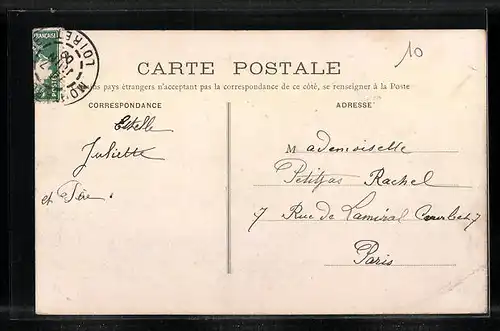 10
FRANÇAISE
LOIRET
CARTE POSTALE
pays étrangers n'acceptant pas la correspondance de ce côté, se renseigner à la Poste
CORRESPONDANCE
ADRESSE
Estelle
Juliette
et Père.
Mademoiselle
Petitpas Rachel
7 Rue de Lamiral Courbet 7
Paris